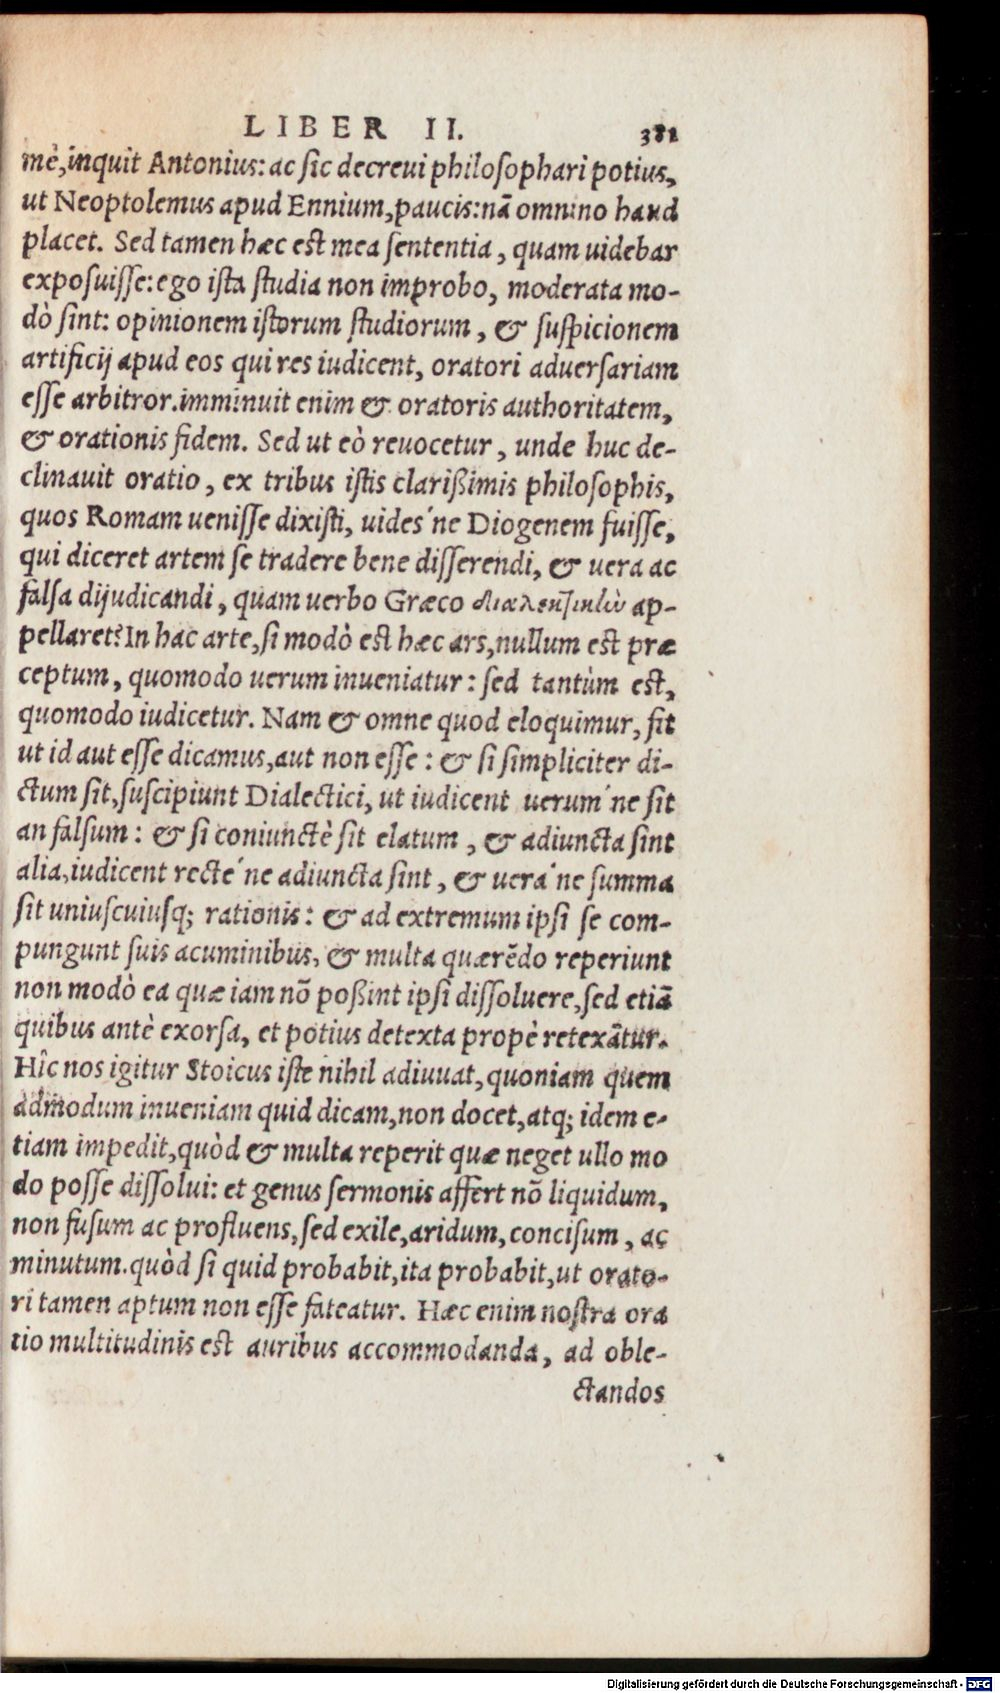 LIBER II. 381
mè, inquit Antonius: ac sic decreui philosophari potius,
ut Neoptolemus apud Ennium, paucis: nã omnino haud
placet. Sed tamen hæc est mea sententia, quam uidebar
exposuisse: ego ista studia non improbo, moderata mo-
dò sint: opinionem istorum studiorum, & suspicionem
artificij apud eos qui res iudicent, oratori aduersariam
esse arbitror. imminuit enim & oratoris authoritatem,
& orationis fidem. Sed ut eò reuocetur, unde huc de-
clinauit oratio, ex tribus istis clarißimis philosophis,
quos Romam uenisse dixisti, uides´ne Diogenem fuisse,
qui diceret artem se tradere bene disserendi, & uera ac
falsa dijudicandi, quam uerbo Græco διαλεκτικὼ ap-
pellaret? In hac arte, si modò est hæc ars, nullum est præ
ceptum, quomodo uerum inueniatur: sed tantùm est,
quomodo iudicetur. Nam & omne quod eloquimur, fit
ut id aut esse dicamus, aut non esse: & si simpliciter di-
ctum sit, suscipiunt Dialectici, ut iudicent uerum´ne sit
an falsum: & si coniunctè sit elatum, & adiuncta sint
alia, iudicent recte´ne adiuncta sint, & uera´ne summa
sit uniuscuiusq; rationis: & ad extremum ipsi se com-
pungunt suis acuminibus, & multa quærẽdo reperiunt
non modò ea quæ iam nõ poßint ipsi dissoluere, sed etiã
quibus antè exorsa, et potius detexta propè retexãtur.
Hîc nos igitur Stoicus iste nihil adiuuat, quoniam quem
admodum inueniam quid dicam, non docet, atq; idem e-
tiam impedit, quòd & multa reperit quæ neget ullo mo
do posse dissolui: et genus sermonis affert nõ liquidum,
non fusum ac profluens, sed exile, aridum, concisum, ac
minutum. quòd si quid probabit, ita probabit, ut orato-
ri tamen aptum non esse fateatur. Hæc enim nostra ora
tio multitudinis est auribus accommodanda, ad oble-
ctandos
Digitalisierung gefördert durch die Deutsche Forschungsgemeinschaft - DFG